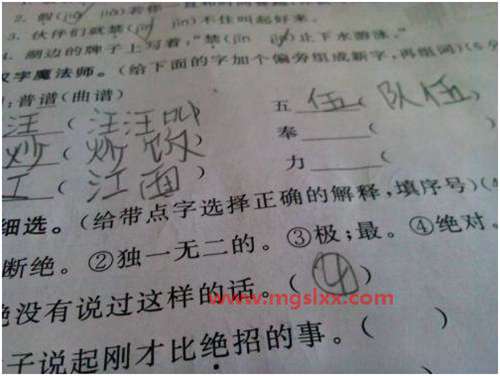 2. 假(jiǎ jià)若你一直和时间
3. 伙伴们就禁(jīn jìn)不住叫起好来。
4. 湖边的牌子上写着,“禁(jīn jìn)止下水游泳。”
汉字魔法师。(给下面的字加个偏旁组成新字,再组词)(6分
:普谱(曲谱)
汪(汪汪叫 五 伍(队伍)
炒(炒饭 奉 (
工(江面) 力 (
细选。(给带点字选择正确的解释,填序号)(4
断绝。②独一无二的。③极;最。④绝对。
绝没有说过这样的话。(④)
www.mgslxx.com
子说起刚才比绝招的事。( )